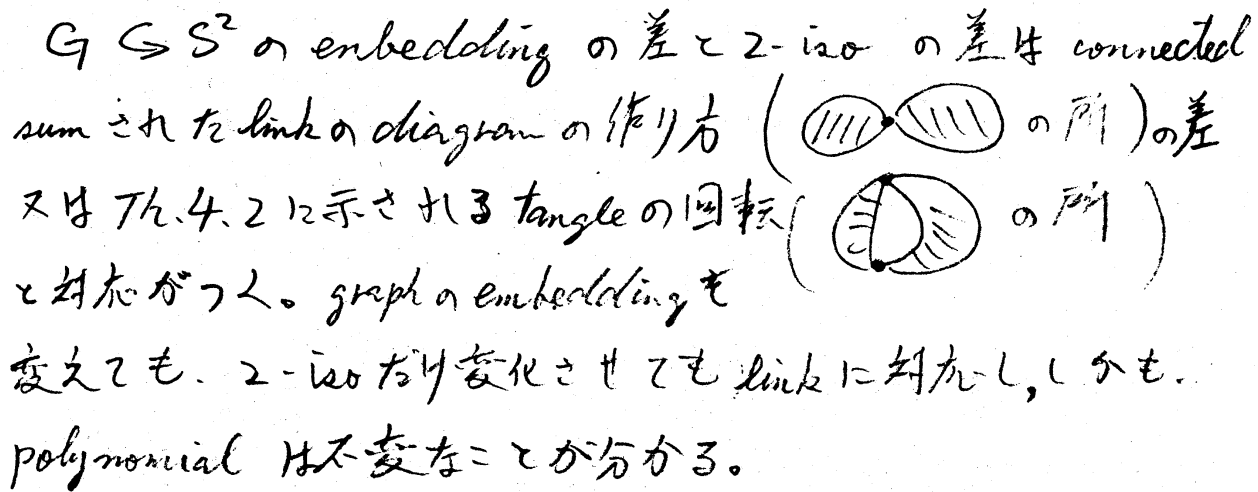 G ↪ S² の enbedding の差と 2-iso の差は connected
sum された link の diagram の作り方 ( の所 ) の差
又は Th. 4. 2 に示される tangle の回転 ( の所 )
と対応がつく。 graph の embedding を
変えても、 2-iso だけ変化させても link に対応し, しかも、
polynomial は不変なことが分かる。